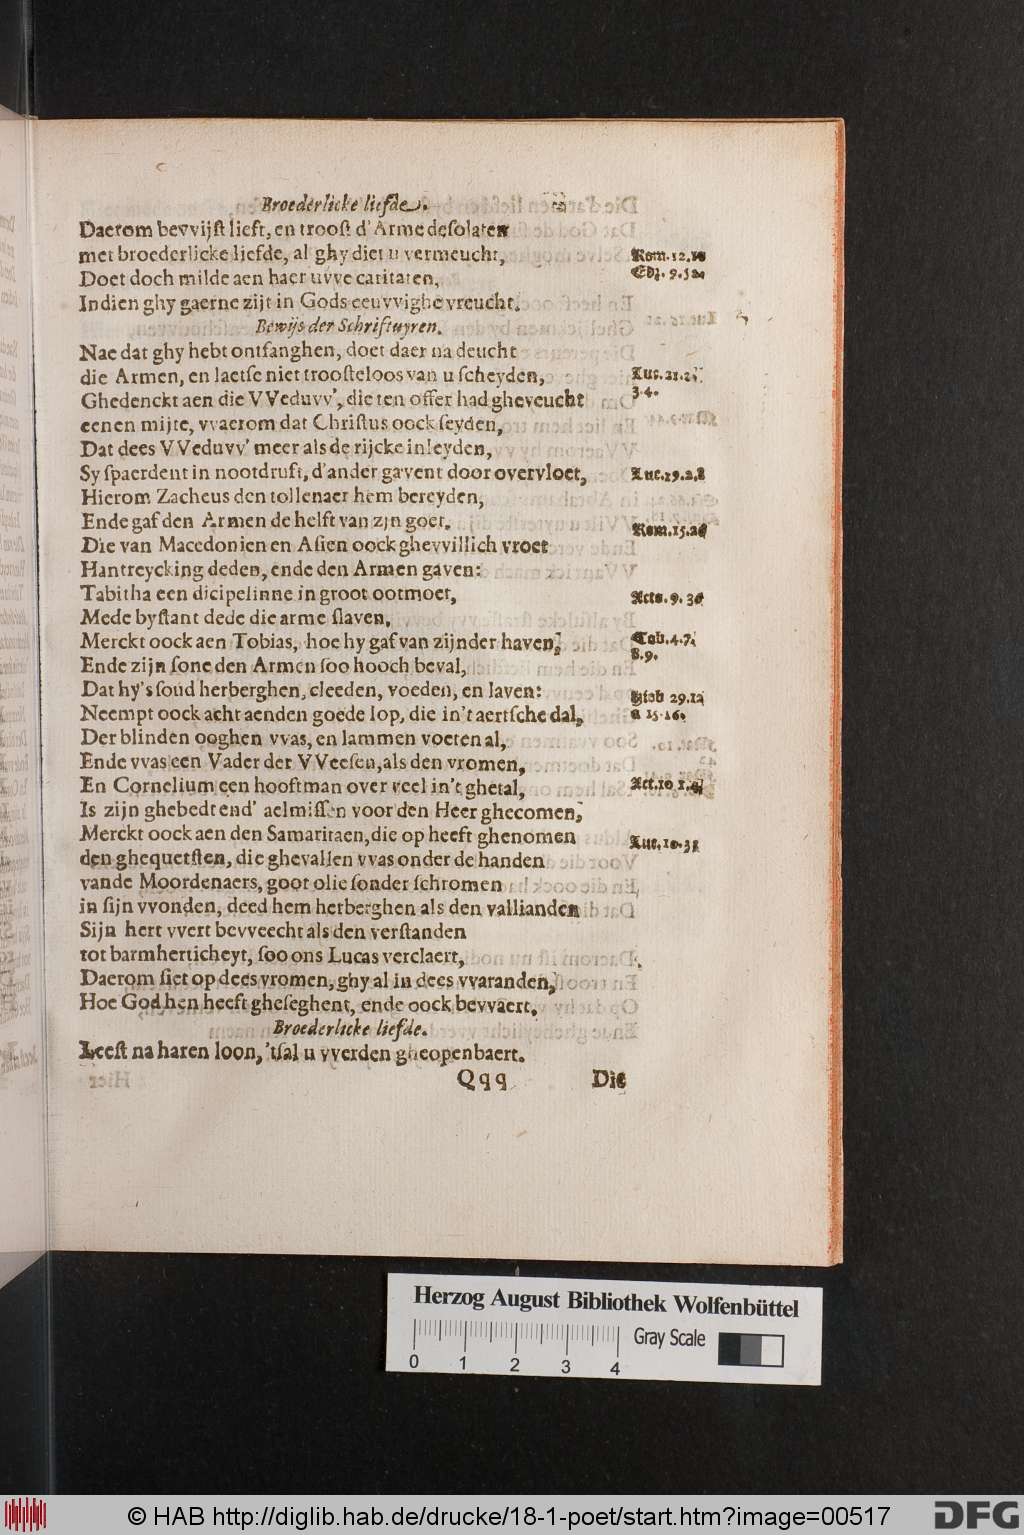 Broederlicke liefde.
Daerom bevvijst lieft, en troost d'Arme desolaten
met broederlicke liefde, al ghy diet u vermeucht, Rom. 12.10
Doet doch milde aen haer uvve caritaten, Eph. 9.
Indien ghy gaerne zijt in Gods eeuvvighe vreucht.
Bewijs der Schriftuyren.
Nae dat ghy hebt ontfanghen, doet daer na deucht
die Armen, en laetse niet troosteloos van u scheyden, Luc. 21.2
Ghedenckt aen die VVeduvv', die ten offer had gheveucht 3.4.
eenen mijte, vvaerom dat Christus oock seyden,
Dat dees VVeduvv' meer als de rijcke inleyden,
Sy spaerdent in nootdruft, d'ander gavent door overvloet, Luc. 19.2.8
Hierom Zacheus den tollenaer hem bereyden,
Ende gaf den Armen de helft van zjn goet. Rom. 15.26
Die van Macedonien en Asien oock ghevvillich vroet
Hantreycking deden, ende den Armen gaven:
Tabitha een dicipelinne in groot ootmoet, Acto. 9. 36
Mede bystant dede die arme slaven,
Merckt oock aen Tobias, hoe hy gaf van zijnder haven, Tob. 4.7.
Ende zijn sone den Armen soo hooch beval, 8.9.
Dat hy's soud herberghen, cleeden, voeden, en laven: Hiob 29.12
Neempt oock acht aenden goede Iop, die in't aertsche dal, 15.16.
Der blinden ooghen vvas, en lammen voeten al,
Ende vvas een Vader der VVeesen, als den vromen,
En Cornelium een hooftman over veel in't ghetal, Act. 10 1.4
Is zijn ghebedt end' aelmissen voor den Heer ghecomen,
Merckt oock aen den Samaritaen, die op heeft ghenomen Luc. 10.33
den ghequetsten, die ghevallen vvas onder de handen
vande Moordenaers, goot olie sonder schromen
in sijn vvonden, deed hem herberghen als den vallianden
Sijn hert vvert bevveecht als den verstanden
tot barmherticheyt, soo ons Lucas verclaert,
Daerom siet op dees vromen, ghy al in dees vvaranden,
Hoe God hen heeft gheseghent, ende oock bevvaert,
Broederlicke liefde.
Leest na haren loon, 'tsal u vverden gheopenbaert.
Qqq Die
Herzog August Bibliothek Wolfenbüttel
Gray Scale
0 1 2 3 4
© HAB http://diglib.hab.de/drucke/18-1-poet/start.htm?image=00517
DFG